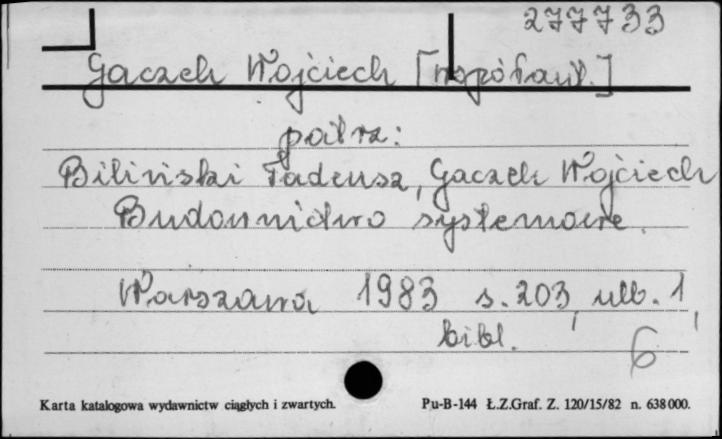 277733
Gaczek Wojciech [współaut.]
patrz:
Biliński Tadeusz, Gaczek Wojciech
Budownictwo systemowe.
Warszawa 1983 s. 203, nlb. 1,
bibl.
6
Karta katalogowa wydawnictw ciągłych i zwartych.
Pu-B-144 Ł.Z.Graf. Z. 120/15/82 n. 638000.